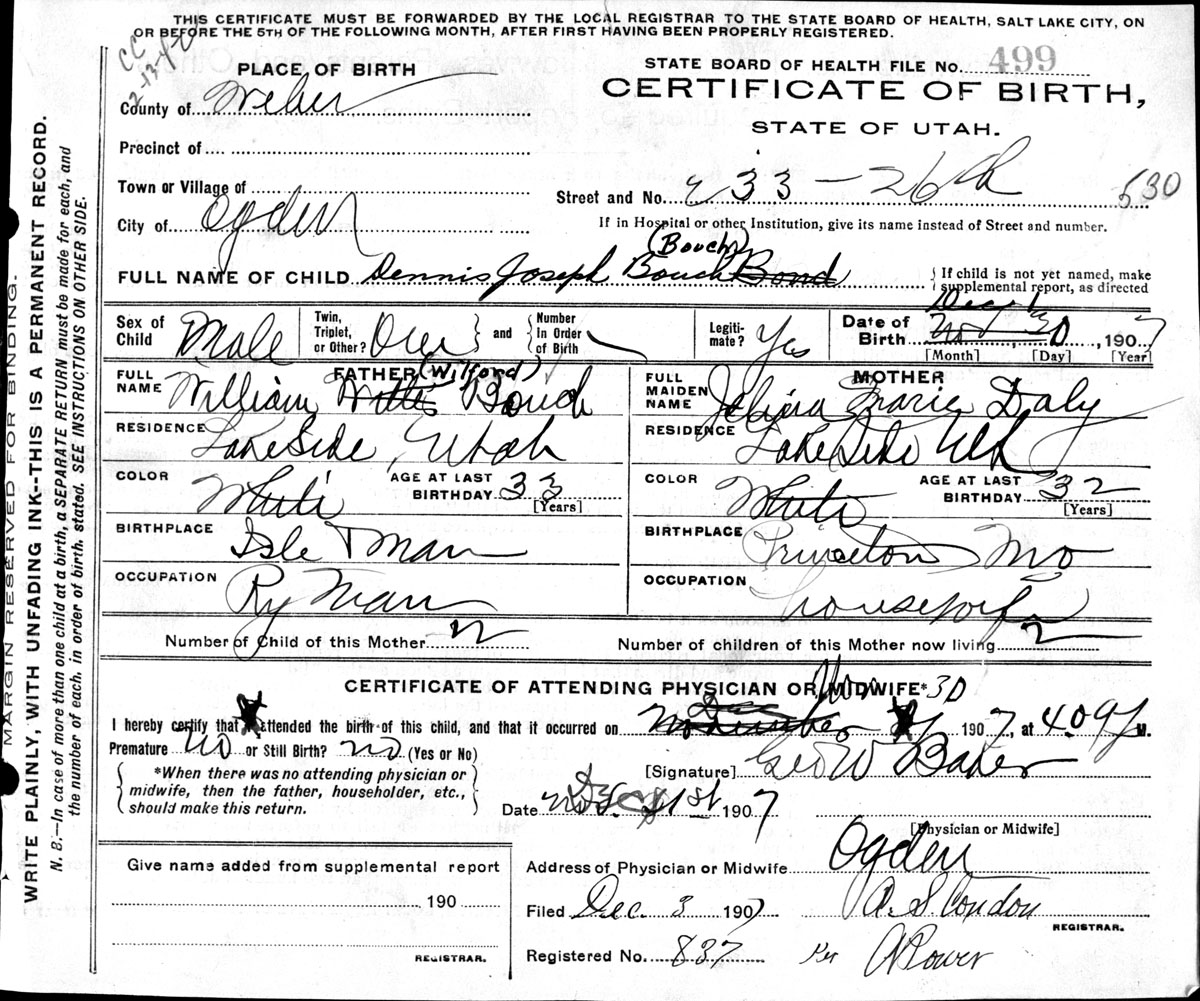 THIS CERTIFICATE MUST BE FORWARDED BY THE LOCAL REGISTRAR TO THE STATE BOARD OF HEALTH, SALT LAKE CITY, ON
OR BEFORE THE 5TH OF THE FOLLOWING MONTH, AFTER FIRST HAVING BEEN PROPERLY REGISTERED.
CC
2-13-42
MARGIN RESERVED FOR BINDING.
WRITE PLAINLY, WITH UNFADING INK--THIS IS A PERMANENT RECORD.
N. B.—In case of more than one child at a birth, a SEPARATE RETURN must be made for each, and
the number of each, in order of birth, stated. SEE INSTRUCTIONS ON OTHER SIDE.
PLACE OF BIRTH
County of Weber
Precinct of
Town or Village of
City of Ogden
STATE BOARD OF HEALTH FILE No. 499
CERTIFICATE OF BIRTH,
STATE OF UTAH.
Street and No. 33 - 26th 530
If in Hospital or other Institution, give its name instead of Street and number.
(Bouch)
FULL NAME OF CHILD Dennis Joseph Bouch Bond
{ If child is not yet named, make
supplemental report, as directed
Sex of Child Male
Twin, Triplet, or Other? One } and { Number In Order of Birth
Legiti-mate? Yes
Date of Birth Nov 30, 1907
[Month] [Day] [Year]
FATHER (Wilford)
FULL NAME William Willis Bouch
RESIDENCE Lake Side, Utah
COLOR White AGE AT LAST BIRTHDAY 33 [Years]
BIRTHPLACE Isle Man
OCCUPATION Ry Man
MOTHER
FULL MAIDEN NAME Marie Daly
RESIDENCE Lake Side Utah
COLOR White AGE AT LAST BIRTHDAY 32 [Years]
BIRTHPLACE Princeton Mo
OCCUPATION Housewife
Number of Child of this Mother 2
Number of children of this Mother now living 2
CERTIFICATE OF ATTENDING PHYSICIAN OR MIDWIFE* Nov 30
I hereby certify that I attended the birth of this child, and that it occurred on November 1907, at 4.09 M.
Premature no or Still Birth? no (Yes or No)
{ *When there was no attending physician or
midwife, then the father, householder, etc.,
should make this return. }
[Signature] Geo W Baker
Date Dec 1st 1907
[Physician or Midwife]
Give name added from supplemental report
190
REGISTRAR.
Address of Physician or Midwife Ogden
Filed Dec. 3 1907 A. S. Condon
REGISTRAR.
Registered No. 837 Per A Power